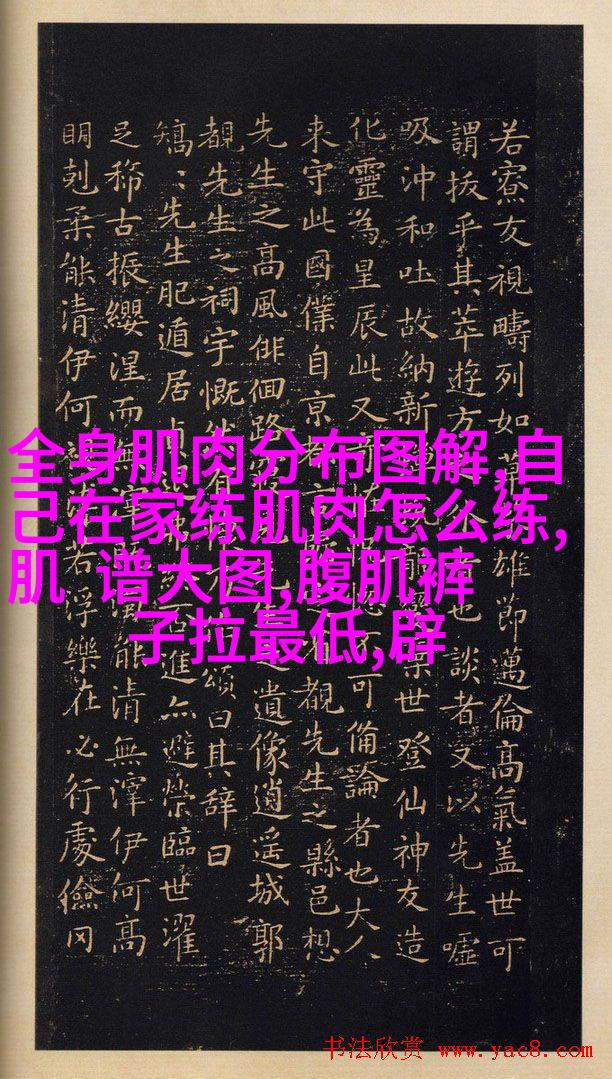 若寮友視疇列如草雄節邁倫高氣蓋世可
謂拔乎其萃遊方者也談者又以先生噓
吸沖和吐故納新龍棄世登仙神友造
化靈為星辰此又可備論者也大人
来守此國僕自京覩先生之縣邑想
先生之高風徘徊路之遺像逍遥城郭
覩先生之祠宇慨然頌曰其辭曰
矯〻先生肥遁居進亦避榮臨世濯
足稀古振纓涅而無能清無滓伊何高
明剋柔能清伊何若浮樂在必行處儉罔
全身肌肉分布图解,自
己在家练肌肉怎么练,
肌 谱大图,腹肌裤
子拉最低,辟
书法欣赏 www.yac8.com